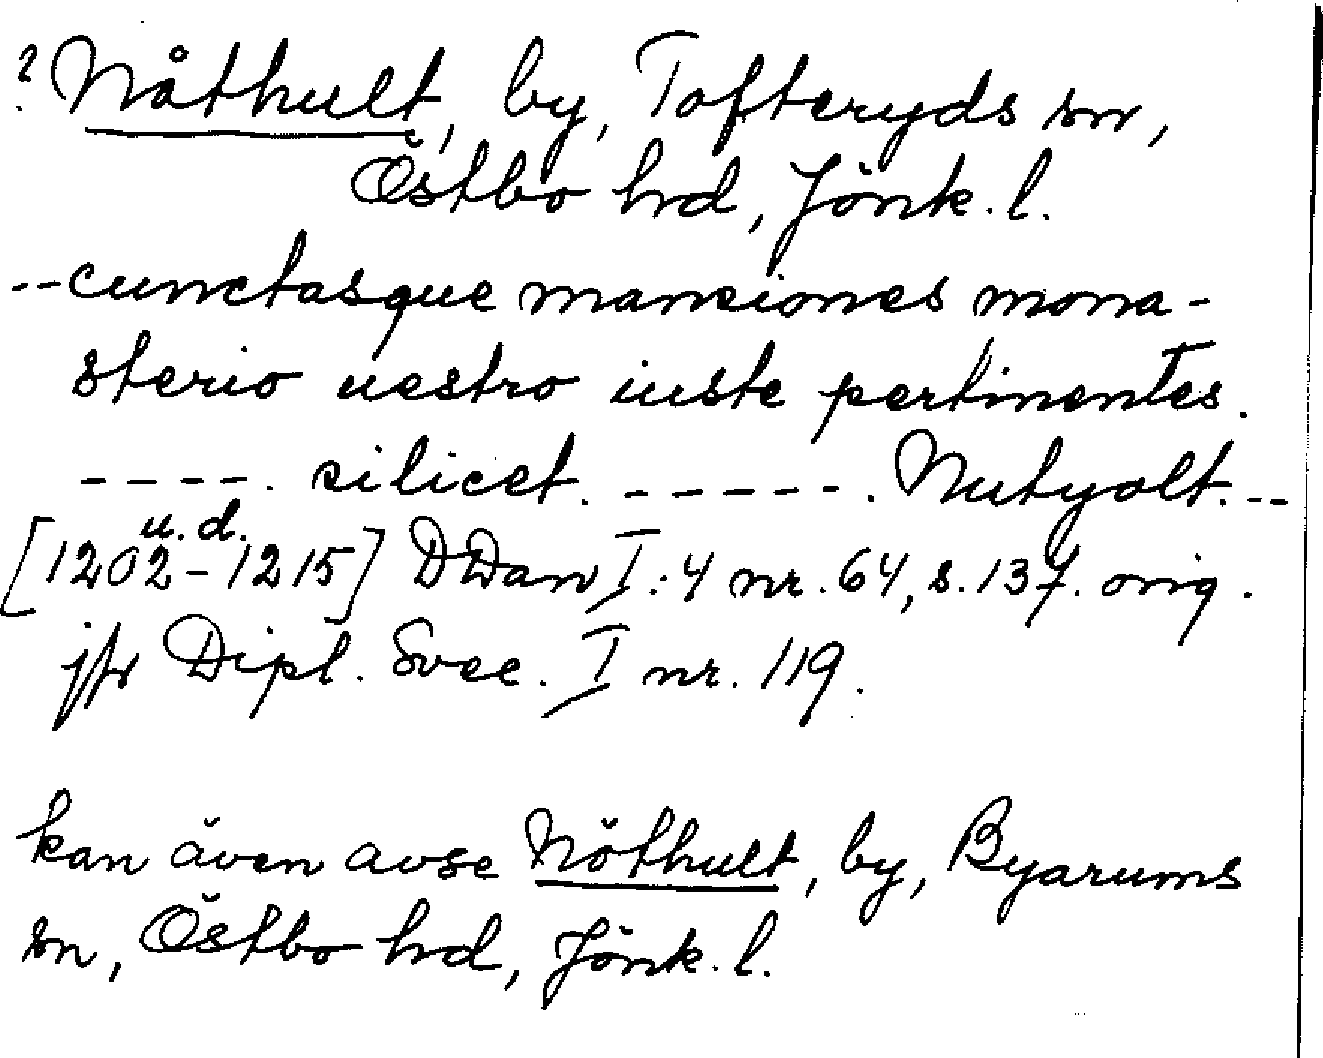 ? Nåthult, by, Tofteryds sn,
Östbo hd, Jönk. l.
-- cunctasque manciones mona-
sterio uestro iuste pertinentes.
----. silicet. -----. Nutyolt. --
u. d.
[1202-1215] DDan I:4 nr. 64, s. 137. orig.
jfr Dipl. Svec. I nr. 119.
kan även avse Nöthult, by, Byarums
sn, Östbo hd, Jönk. l.